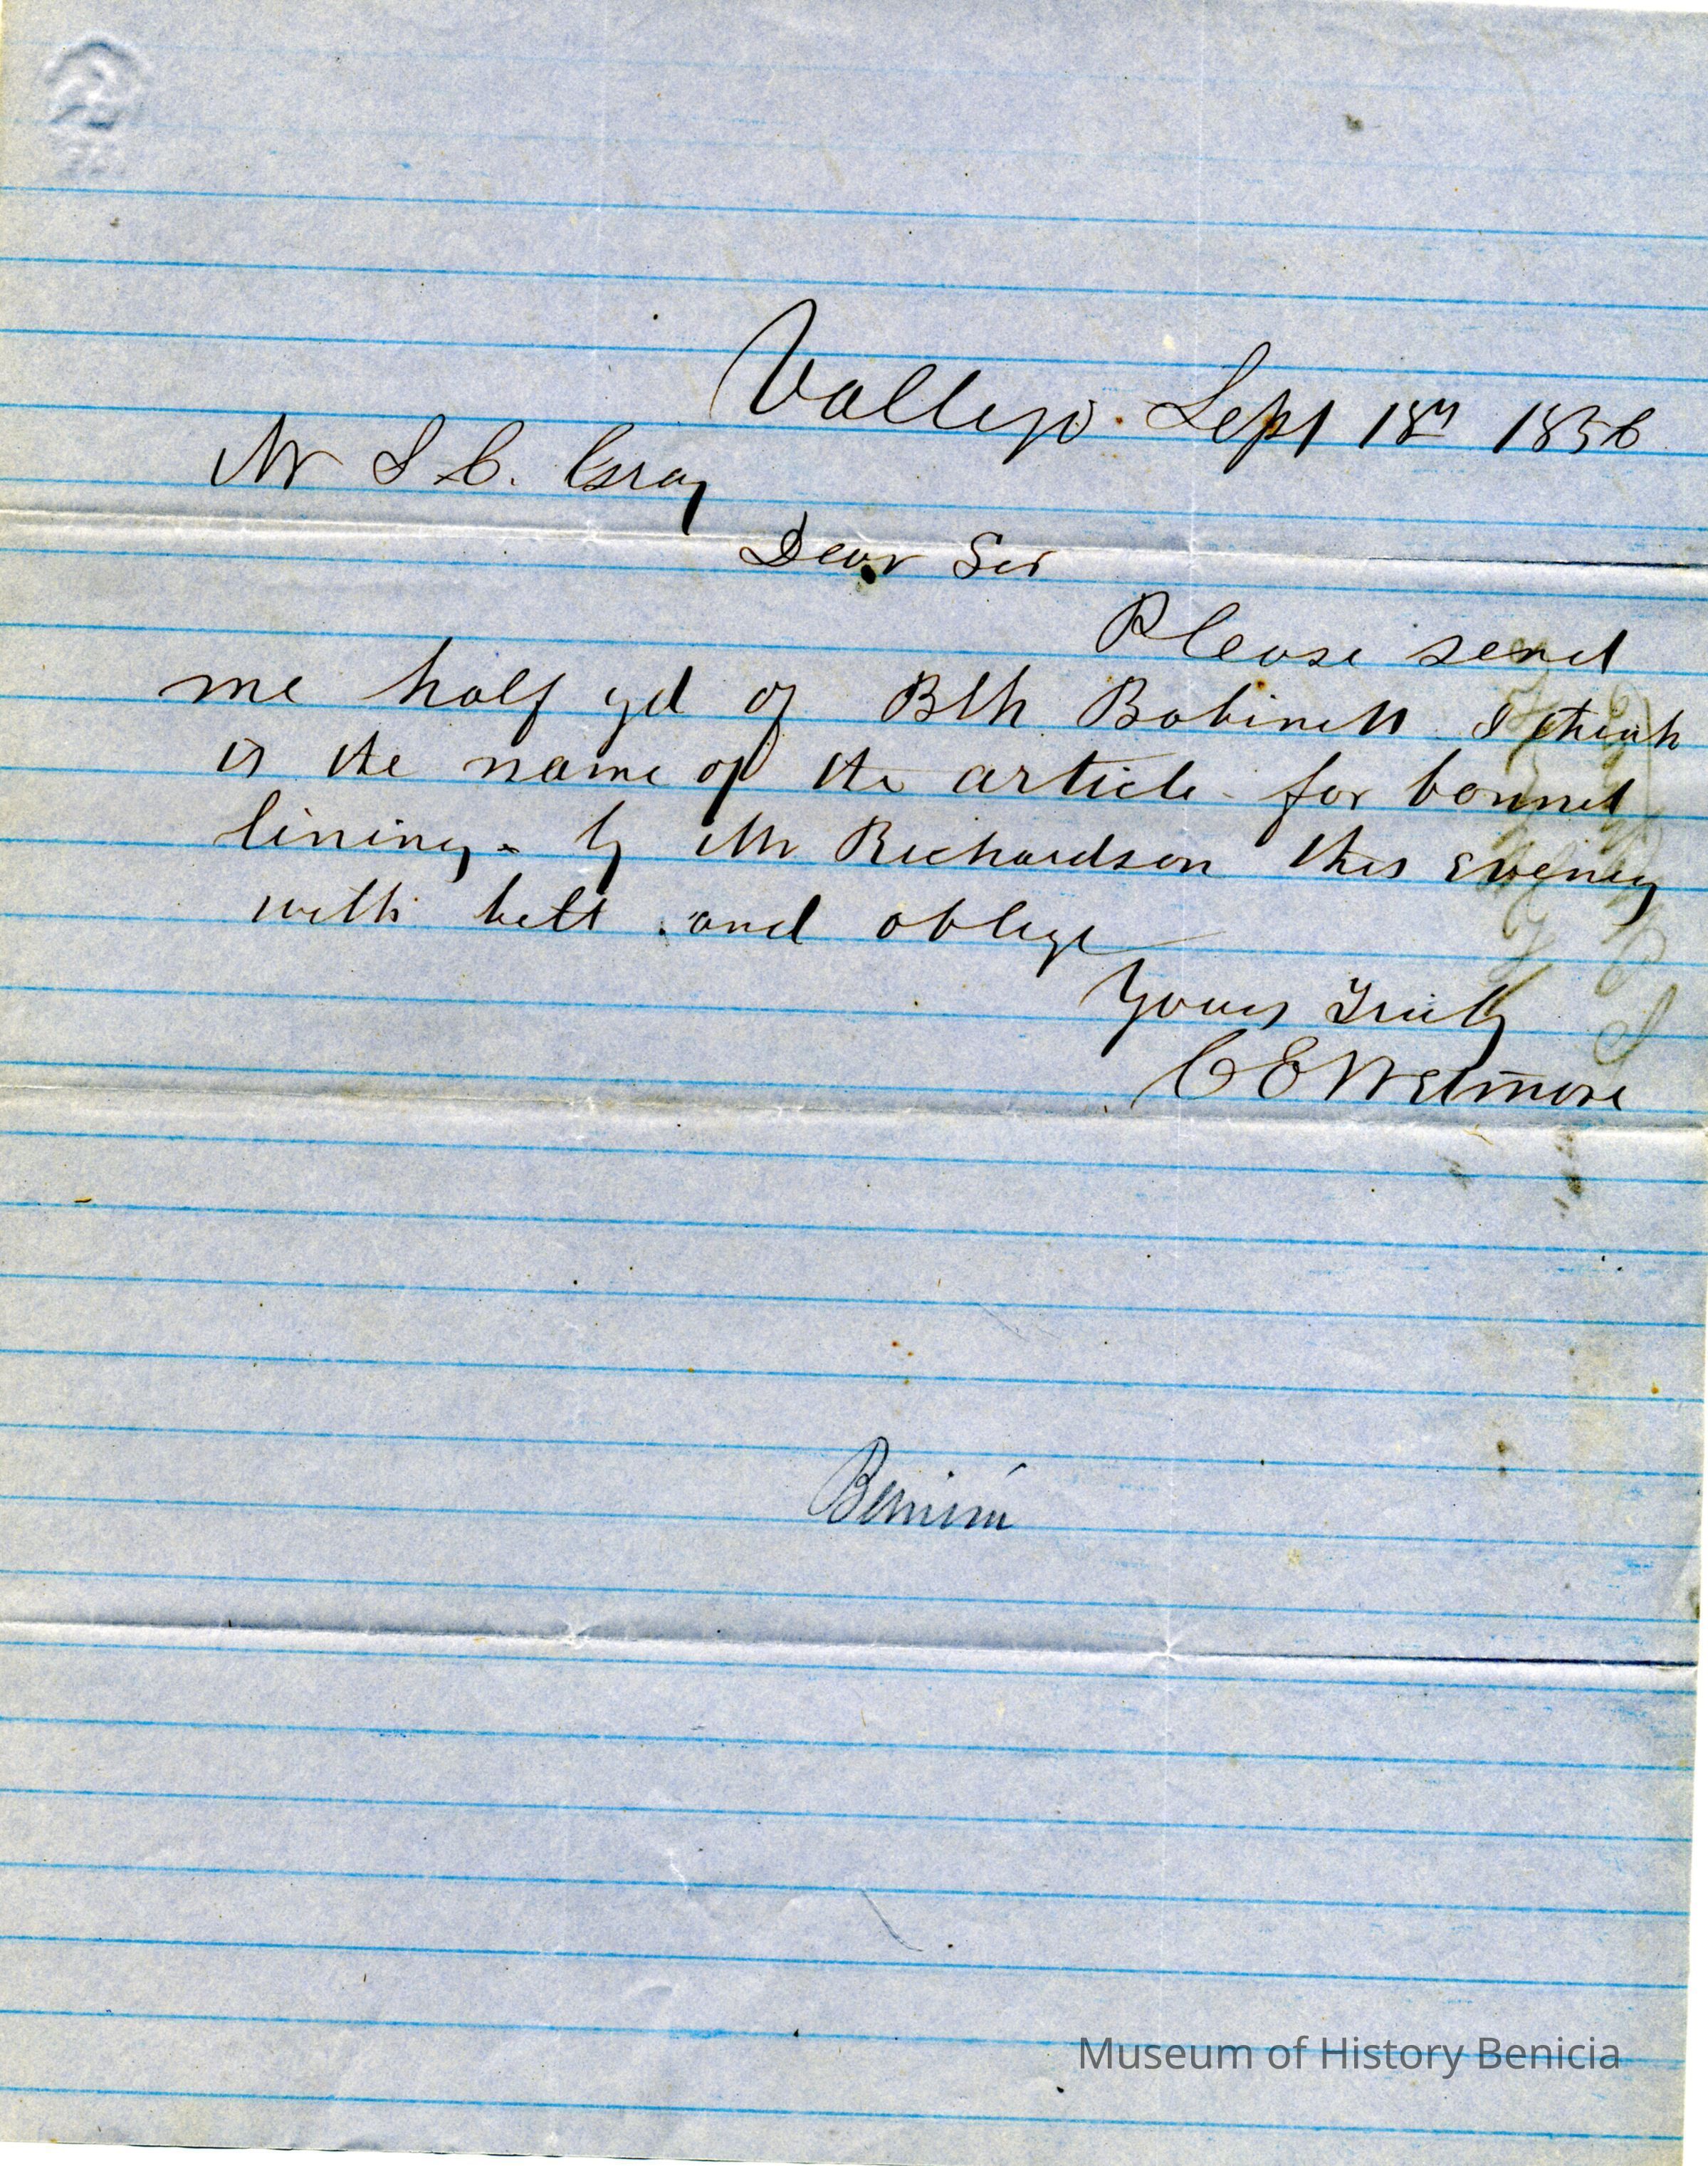 Vallejo. Sept 18th 1856
Mr S. C. Gray
Dear Sir
Please send
me half yd of Blk Bobinett I think
is the name of the article for bonnet
lining - by Mr Richardson this evening
with bill and oblige
Yours Truly
C E Wetmore
Museum of History Benicia